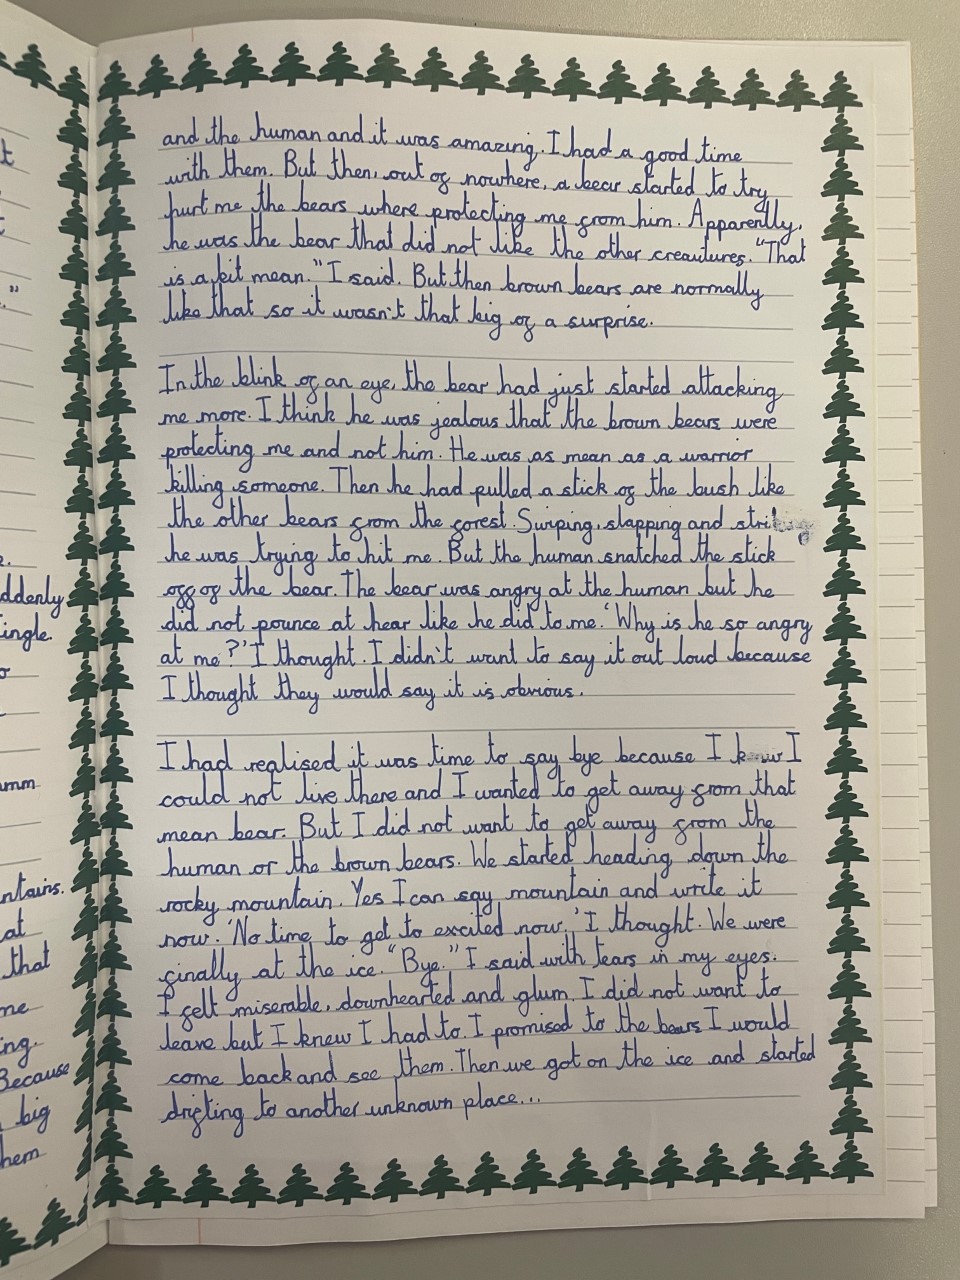 and the human and it was amazing. I had a good time
with them. But then, out of nowhere, a bear started to try
hurt me the bears where protecting me from him. Apparently,
he was the bear that did not like the other creautures. "That
is a bit mean." I said. But then brown bears are normally
like that so it wasn't that big of a surprise.
In the blink of an eye, the bear had just started attacking
me more. I think he was jealous that the brown bears were
protecting me and not him. He was as mean as a warrior
killing someone. Then he had pulled a stick of the bush like
the other bears from the forest. Swiping, slapping and
he was trying to hit me. But the human snatched the stick
off of the bear. The bear was angry at the human but he
did not pounce at hear like he did to me. 'Why is he so angry
at me?' I thought. I didn't want to say it out loud because
I thought they would say it is obvious.
I had realised it was time to say bye because I knew I
could not live there and I wanted to get away from that
mean bear. But I did not want to get away from the
human or the brown bears. We started heading down the
rocky mountain. Yes I can say mountain and write it
now. 'No time to get to excited now,' I thought. We were
finally at the ice. "Bye." I said with tears in my eyes.
I felt miserable, downhearted and glum. I did not want to
leave but I knew I had to. I promised to the bears I would
come back and see them. Then we got on the ice and started
drifting to another unknown place...
ddenly
ingle.
umm
ntains.
at
that
me
ing.
Because
big
hem